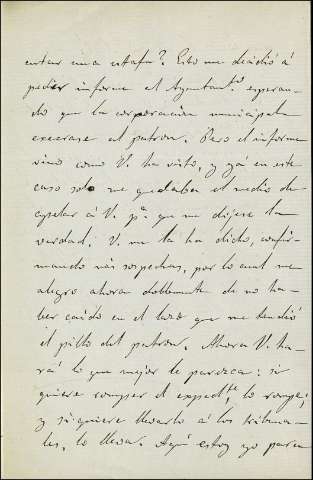 entar una estafa? Esto me decidió á
pedir informe al Ayuntamto. esperan-
do que la corporación municipal
execrase al patron. Pero el informe
vino como V. ha visto, y yá en este
caso solo me quedaba el medio de
apelar á V. pa. que me dijese la
verdad. V. me la ha dicho, confir-
mando mis sospechas, por lo cual me
alegro ahora doblemente de no ha-
ber caido en el lazo que me tendió
el pillo del patron. Ahora V. ha-
rá lo que mejor le parezca: si
quiere romper el expedte. lo rompe;
y si quiere llevarlo á los tribuna-
les, lo lleva. Aquí estoy yo para